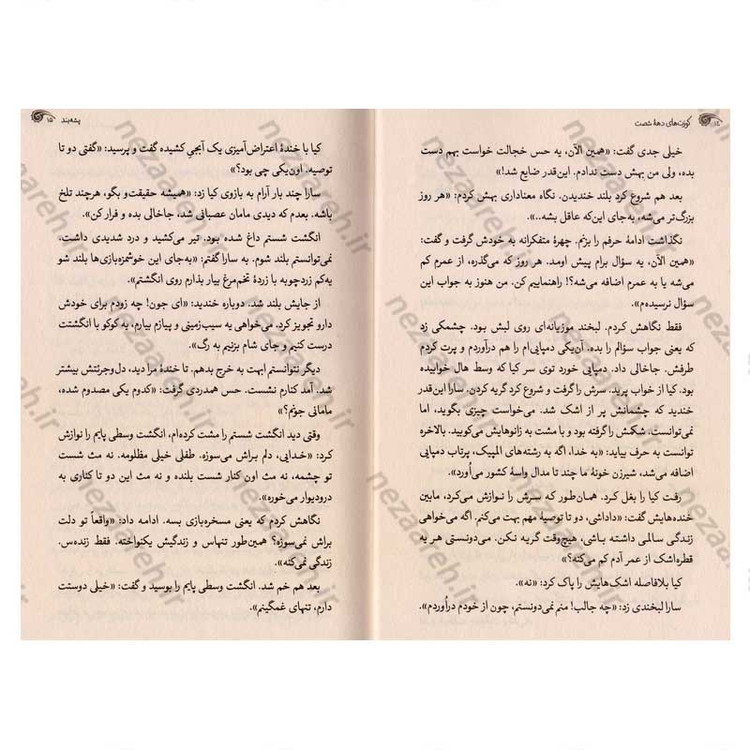 ۱۴ کوزت‌های دههٔ شصت
خیلی جدی گفت: «همین الآن، یه حس خجالت خواست بهم دست
بده، ولی من بهش دست ندادم. این‌قدر ضایع شد!»
بعد هم شروع کرد بلند خندیدن. نگاه معناداری بهش کردم: «هر روز
بزرگ‌تر می‌شه، به‌جای این‌که عاقل بشه..».
نگذاشت ادامهٔ حرفم را بزنم. چهرهٔ متفکرانه به خودش گرفت و گفت:
«همین الآن، یه سؤال برام پیش اومد. هر روز که می‌گذره، از عمرم کم
می‌شه یا به عمرم اضافه می‌شه؟! راهنماییم کن. من هنوز به جواب این
سؤال نرسیده‌م».
فقط نگاهش کردم. لبخند موزیانه‌ای روی لبش بود. چشمکی زد
که یعنی جواب سؤالم را بده. آن‌یکی دمپایی‌ام را هم درآوردم و پرت کردم
طرفش. جاخالی داد. دمپایی خورد توی سر کیا که وسط هال خوابیده
بود. کیا از خواب پرید. سرش را گرفت و شروع کرد گریه کردن. سارا این‌قدر
خندید که چشمانش پر از اشک شد. می‌خواست چیزی بگوید، اما
نمی‌توانست. شکمش را گرفته بود و با مشت به زانوهایش می‌کوبید. بالاخره
توانست به حرف بیاید: «به خدا، اگه به رشته‌های المپیک، پرتاب دمپایی
اضافه می‌شد، شیرزن خونهٔ ما چند تا مدال واسهٔ کشور می‌آورد».
رفت کیا را بغل کرد. همان‌طور که سرش را نوازش می‌کرد، مابین
خنده‌هایش گفت: «داداشی، دو تا توصیه مهم بهت می‌کنم. اگه می‌خواهی
زندگی سالمی داشته باشی، هیچ‌وقت گریه نکن. می‌دونستی هر یه
قطره‌اشک از عمر آدم کم می‌کنه؟»
کیا بلافاصله اشک‌هایش را پاک کرد: «نه».
سارا لبخندی زد: «چه جالب! منم نمی‌دونستم، چون از خودم درآوردم».
پشه‌بند ۱۵
کیا با خندهٔ اعتراض‌آمیزی یک آبجیِ کشیده گفت و پرسید: «گفتی دو تا
توصیه. اون‌یکی چی بود؟»
سارا چند بار آرام به بازوی کیا زد: «همیشه حقیقت‌و بگو، هرچند تلخ
باشه. بعدم که دیدی مامان عصبانی شد، جاخالی بده و فرار کن».
انگشت شستم داغ شده بود. تیر می‌کشید و درد شدیدی داشت.
نمی‌توانستم بلند شوم. به سارا گفتم: «به‌جای این خوشمزه‌بازی‌ها بلند شو
یه‌کم زردچوبه با زردهٔ تخم‌مرغ بیار بذارم روی انگشتم».
از جایش بلند شد. دوباره خندید: «ای جون! چه زودم برای خودش
دارو تجویز کرد. می‌خواهی یه سیب‌زمینی و پیازم بیارم، یه کوکو با انگشتت
درست کنیم و جای شام بزنیم به رگ».
دیگر نتوانستم ابهت به خرج بدهم. تا خندهٔ مرا دید، دل‌وجرئتش بیشتر
شد. آمد کنارم نشست. حس همدردی گرفت: «کدوم یکی مصدوم شده،
مامانی جونم؟»
وقتی دید انگشت شستم را مشت کرده‌ام، انگشت وسطی پایم را نوازش
کرد: «خدایی، دلم براش می‌سوزه. طفلی خیلی مظلومه. نه مث شست
تو چشمه، نه مث اون کنار شست بلنده و نه مث این دو تا کناری به
درودیوار می‌خوره».
نگاهش کردم که یعنی مسخره‌بازی بسه. ادامه داد: «واقعاً تو دلت
براش نمی‌سوزه؟ همین‌طور تنهاس و زندگیش یکنواخته. فقط زنده‌س.
زندگی نمی‌کنه».
بعد هم خم شد. انگشت وسطی پایم را بوسید و گفت: «خیلی دوستت
دارم، تنهای غمگینم».
nezaareh.ir